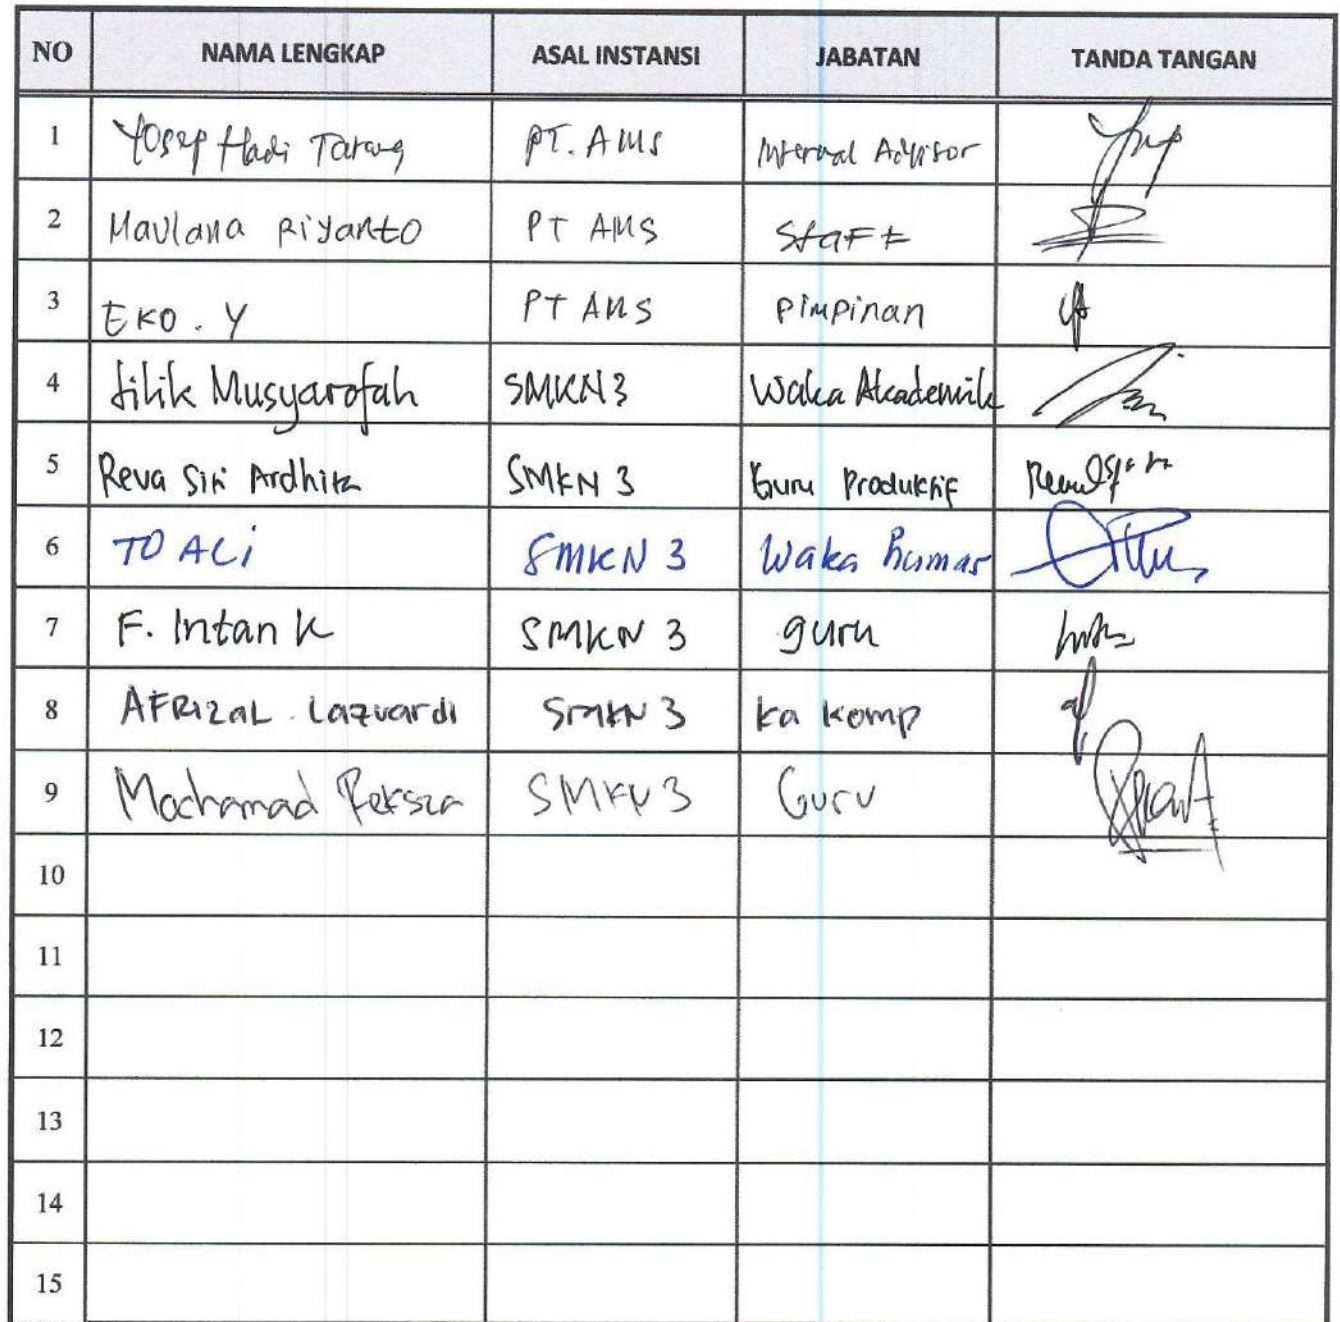 NO NAMA LENGKAP ASAL INSTANSI JABATAN TANDA TANGAN
1 Yosep Hadi PT. AMS Internal Advisor
2 Maulana Riyanto PT AMS Staff
3 EKO . Y PT AMS Pimpinan
4 Lilik Musyarofah SMKN 3 Waka Akademik
5 Reva Ardhita SMKN 3 Guru Produktif
6 TO ALi SMKN 3 Waka humas
7 F. Intan K SMKN 3 guru
8 AFRizaL Lazuardi SMKN 3 ka komp
9 Mochamad SMKN 3 Guru
10
11
12
13
14
15